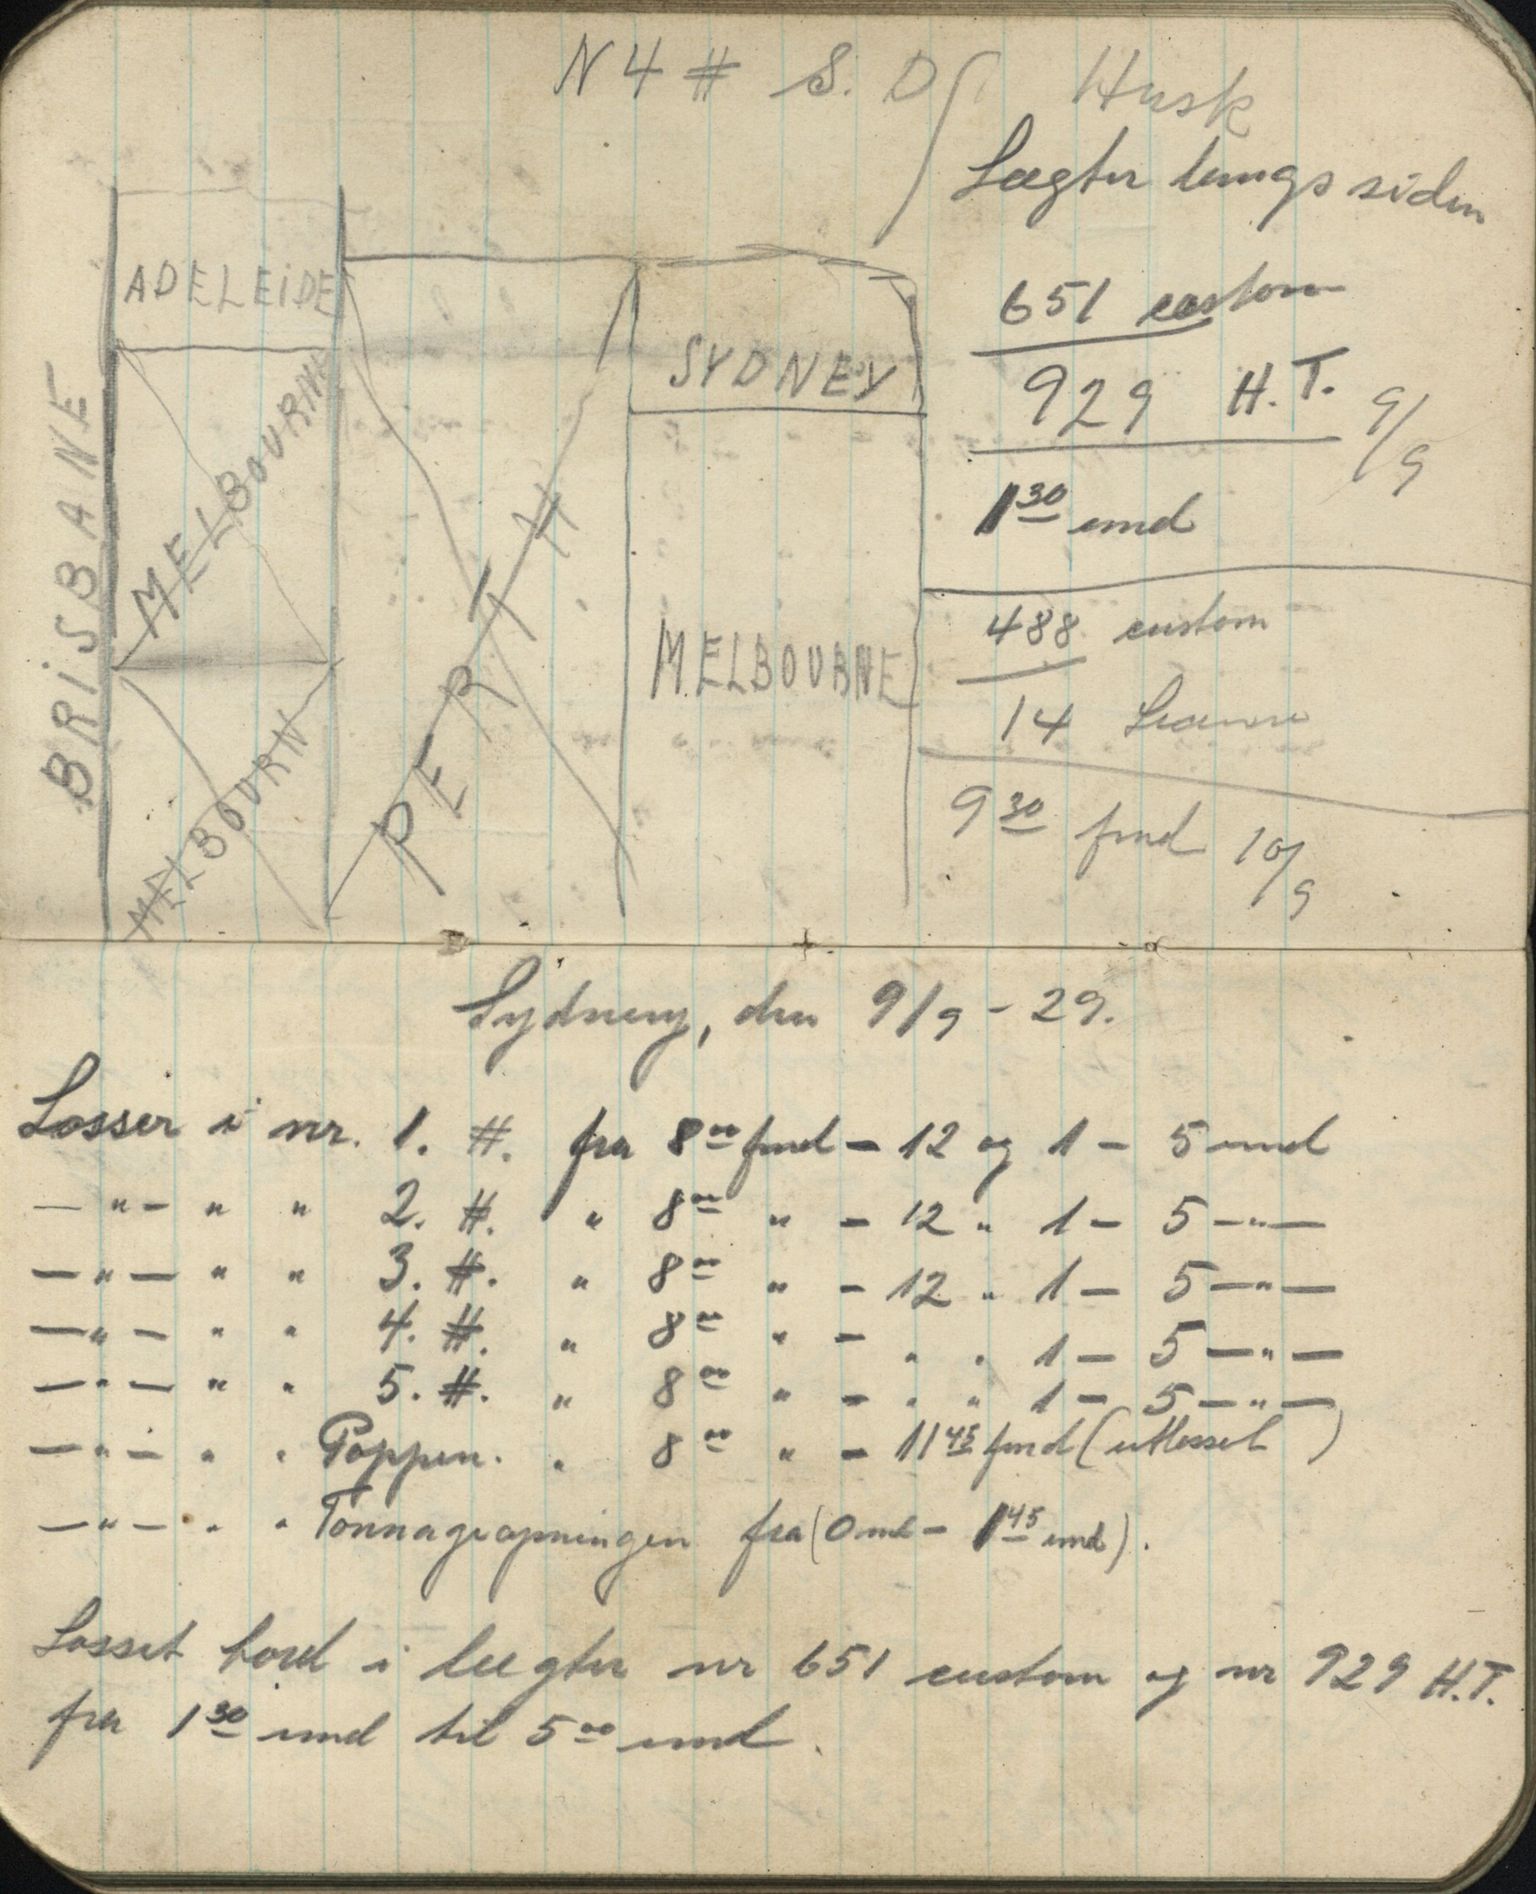 N 4 # S. D
Husk
Lægter langs siden
ADELEIDE
BRISBANE
MELBOURNE
MELBOURN
PERTH
SYDNEY
MELBOURNE
651 custom
929 H.T. 9/9
1 30 emd
488 custom
14
9 30 fmd 10/9
Sydney, den 9/9 - 29.
Losser i nr. 1. #. fra 8 00 fmd - 12 og 1 - 5 emd
— " — " " 2. #. " 8 00 " - 12 " 1 - 5 — " —
— " — " " 3. #. " 8 00 " - 12 " 1 - 5 — " —
— " — " " 4. #. " 8 00 " - " " 1 - 5 — " —
— " — " " 5. #. " 8 00 " - " " 1 - 5 — " —
— " — " " Poppen. " 8 00 " - 11 45 fmd (utlosset)
— " — " " Tonnageopningen fra (0 md - 1 45 emd).
Losset bord i lægter nr 651 custom og nr 929 H.T.
fra 1 30 emd til 5 00 emd.